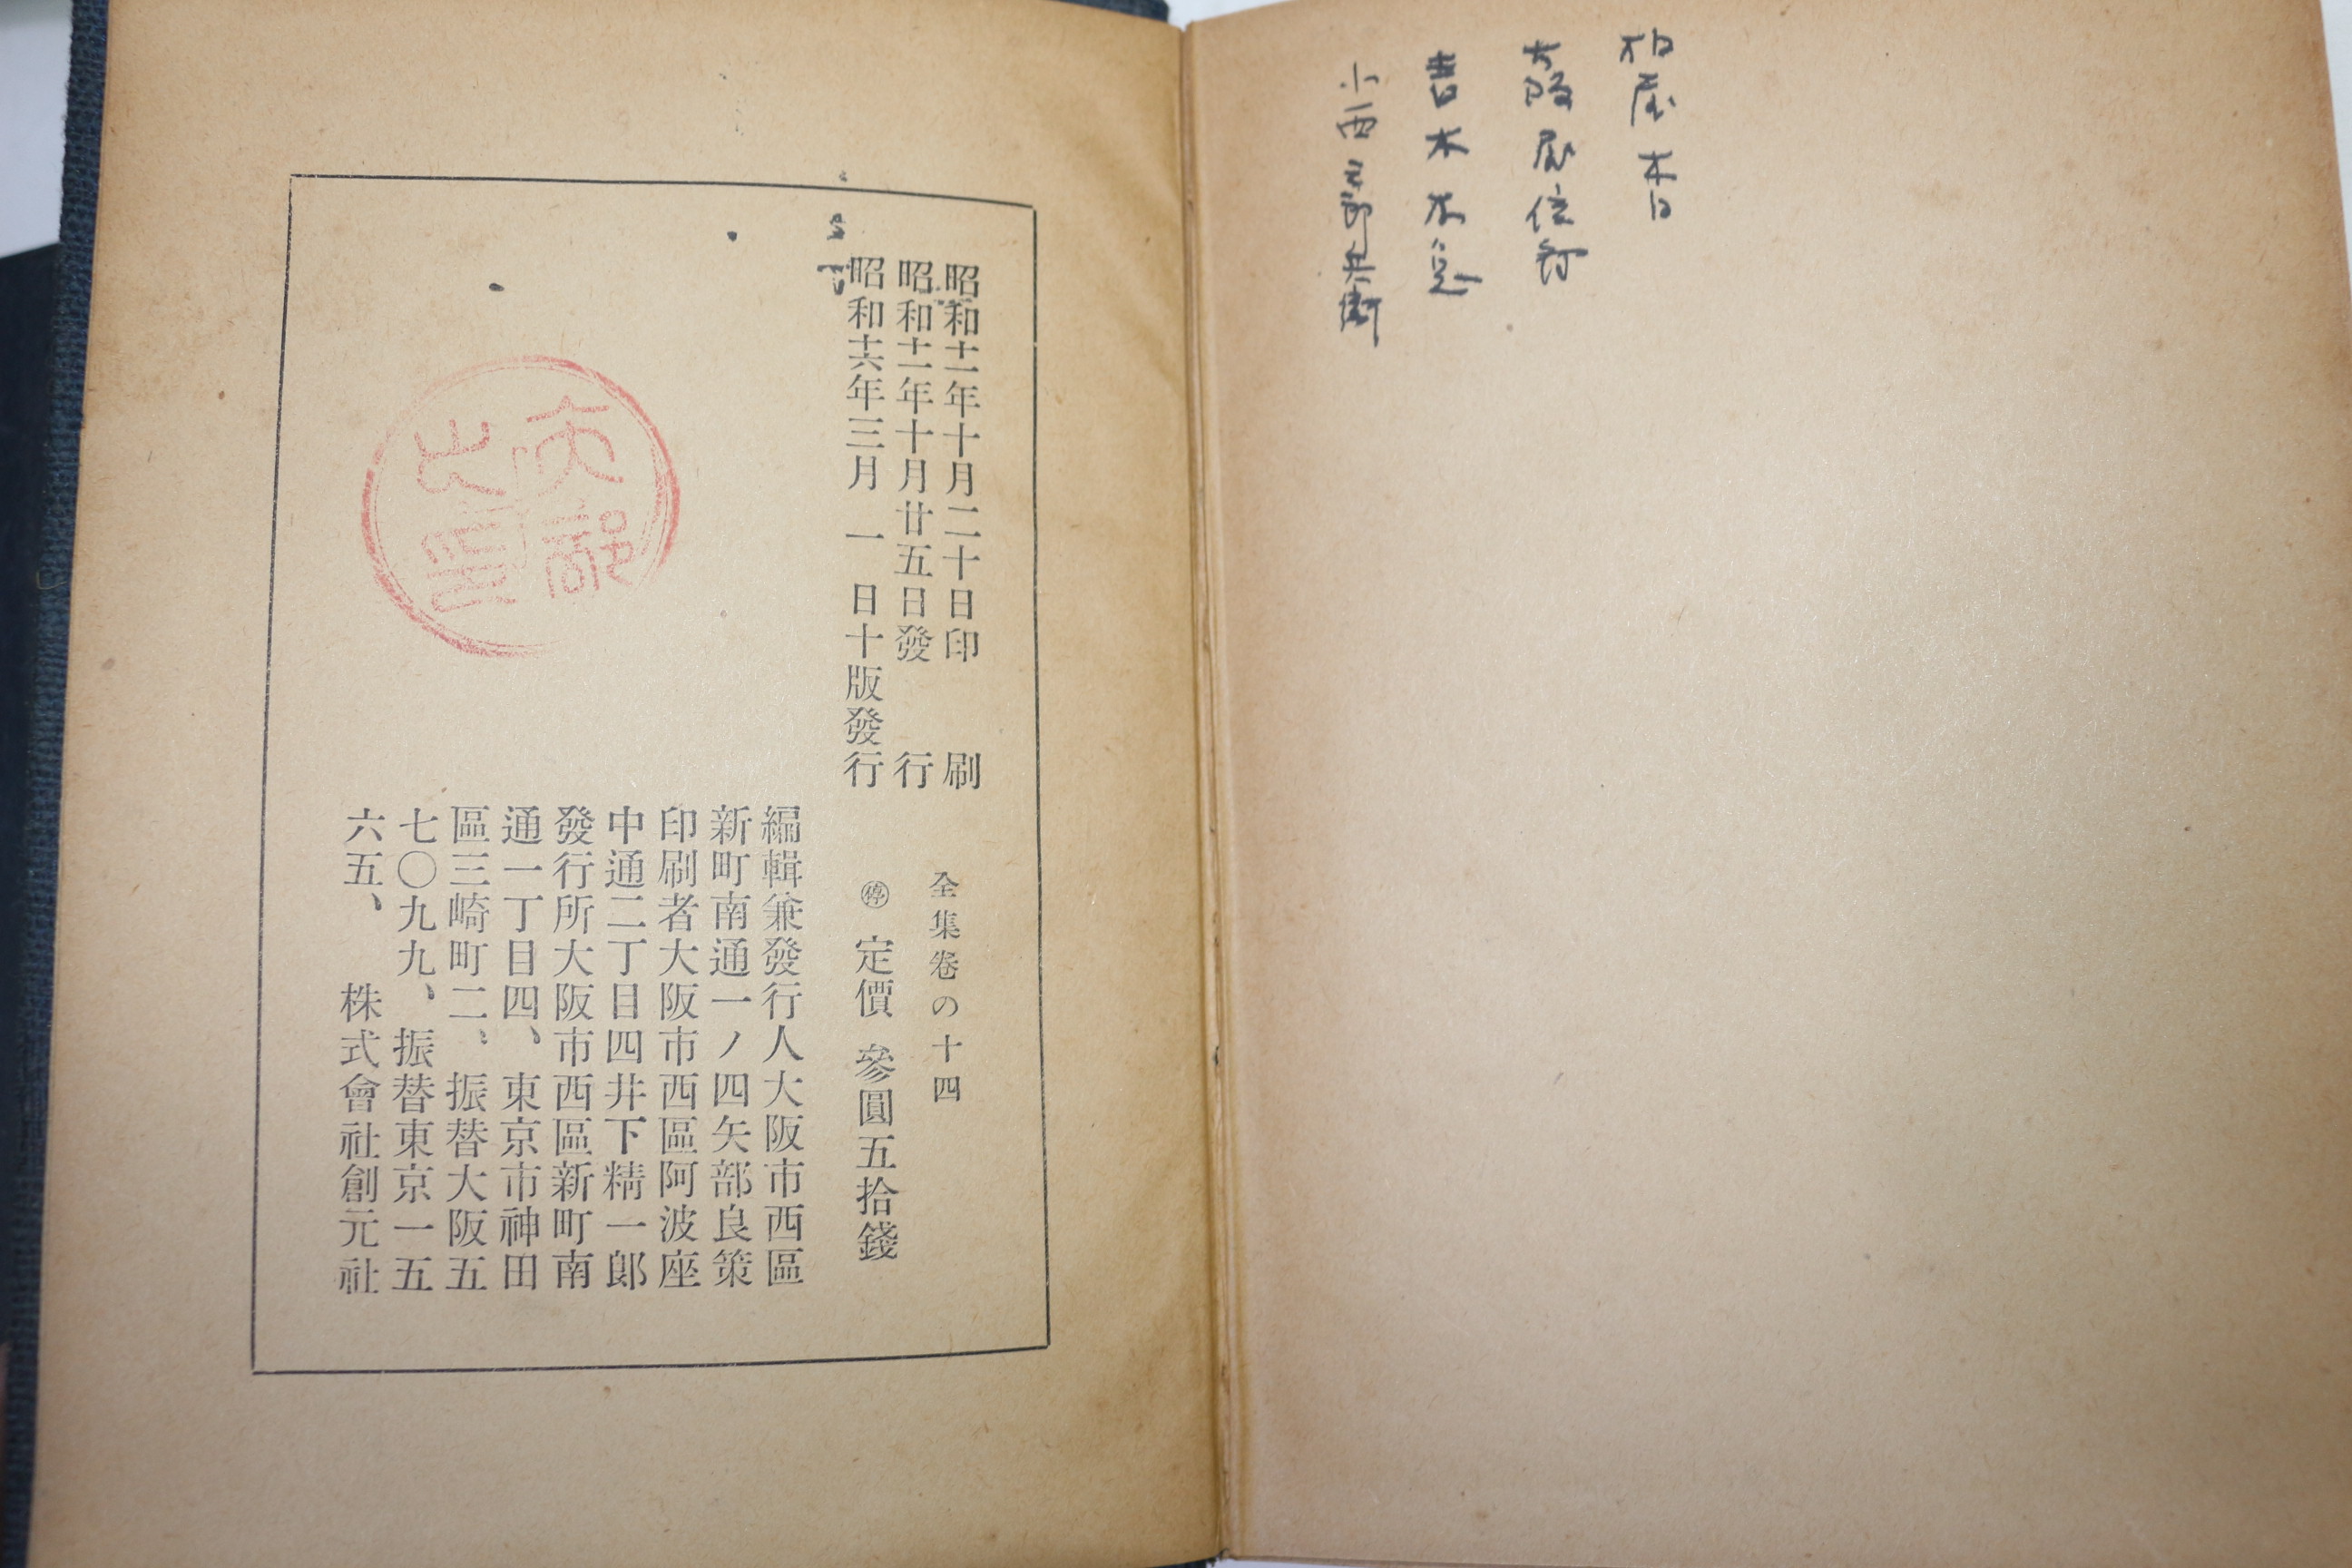 柏屋
大阪屋
吉木
小西五郎兵衛
昭和十二年十月二十日印刷
昭和十二年十月廿五日發行
昭和十六年三月一日十版發行
全集卷の十四
㊡ 定價 參圓五拾錢
編輯兼發行人大阪市西區
新町南通一ノ四矢部良策
印刷者大阪市西區阿波座
中通二丁目四井下精一郎
發行所大阪市西區新町南
通一丁目四、東京市神田
區三崎町二、振替大阪五
七〇九九、振替東京一五
六五、 株式會社創元社